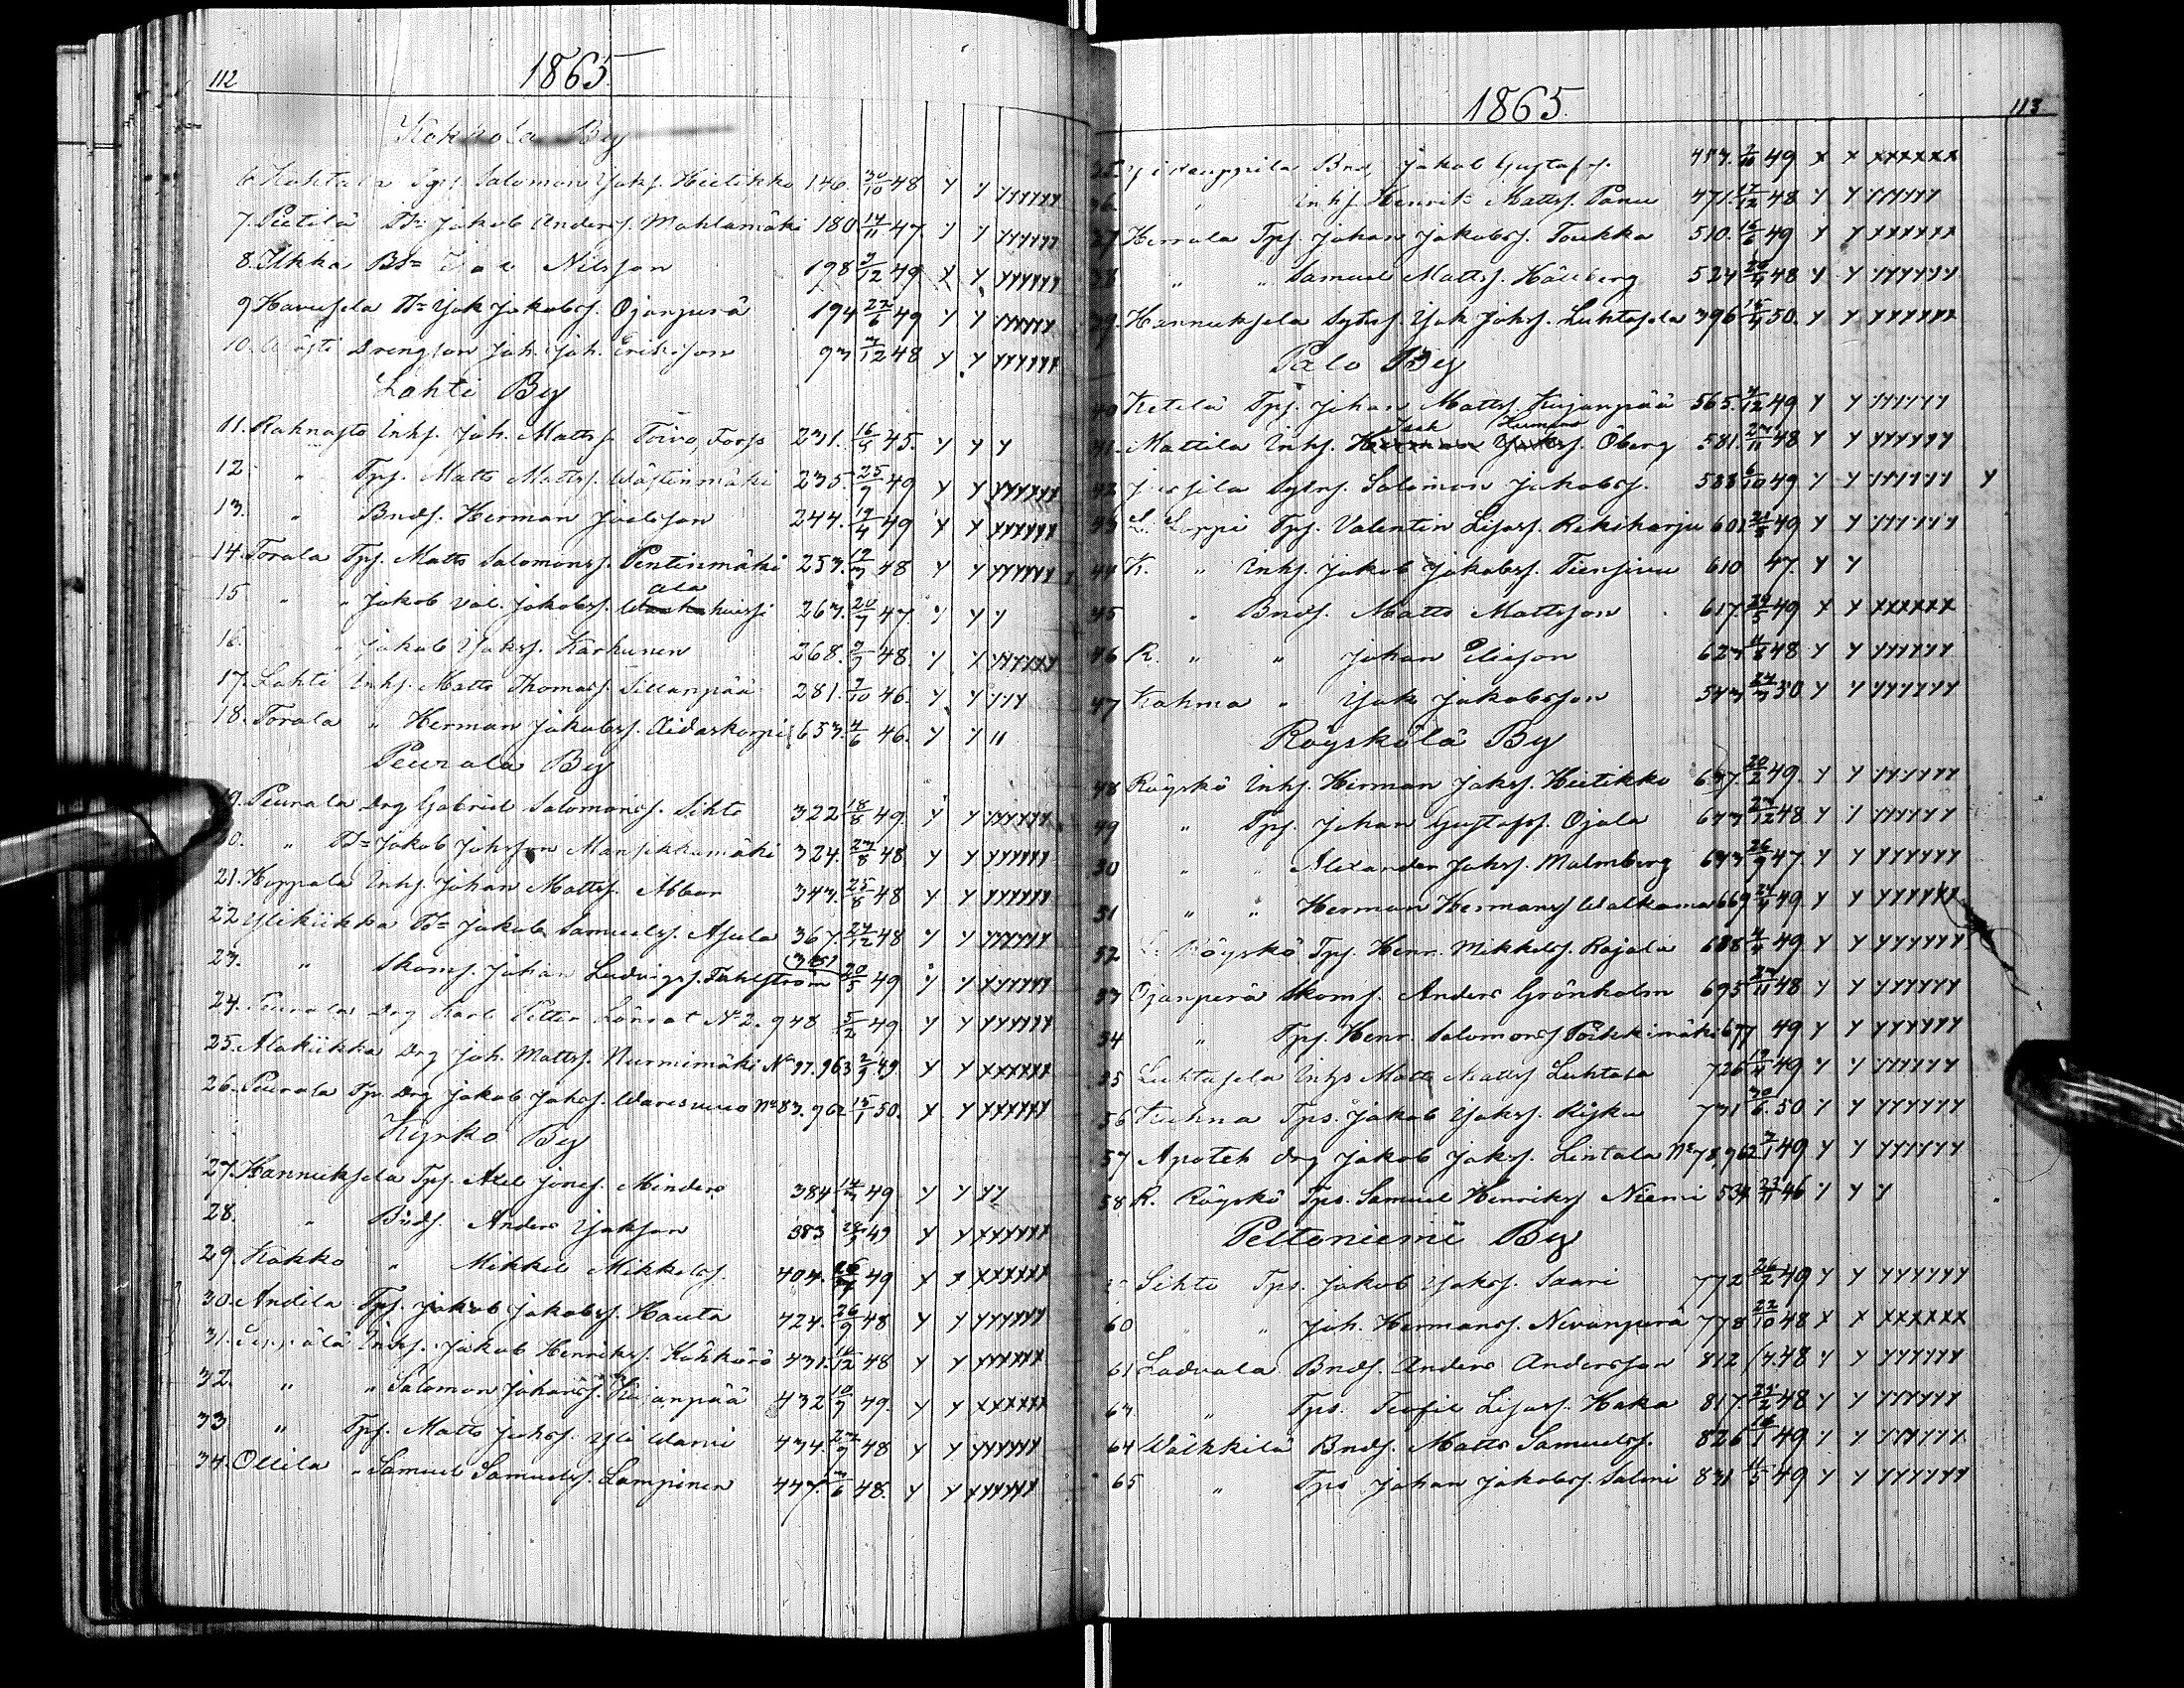 112
1865
Kokkola By
6. Kohtala Tps. Salomon Jaks. Hietikko 146. 30/10 48 y y yyyyyy
7. Pietilä Bs= Jakob Anders. Mahlamäki 180 14/11 47. y y yyyyyy
8. Ilkka BS= Nilsson 198 3/12 49 x y yyyyyy
9 Havusela Bs= Jak Jakobs. Ojanperä 194 22/6 49 y y yyyyyy
10. Drengson Joh. Joh. Eriksson 93 3/12 48 y y yyyyyy
Lahti By
11. Rahnasto Inhs. Joh. Matts. Toivo, Forss 231. 16/5 45. y y y
12 " Tps. Matts Matts. Wästinmäki 235. 25/9 49 y y yyyyyy
13. " Bnds. Herman Joelsson 244. 19/4 49 y y xxxxxx
14. Torala Tps. Matts Salomons. Pentinmäki 253. 12/3 48 y y yyyyyy
ala
15 " " Jakob Val. Jakobs. huissi 263. 20/7 47 y y y
16. " Jakob Jaks. Karhunen 268. 9/7 48. y x yyyyyy
17. Lahti Inhs. Matts Thomass. Sillanpää 281. 7/10 46. y y yyy
18. Torala " Herman Jakobs. Aidaskorpi 653. 4/6 46. y y "
Peurala By
19. Peurala Drg Gabriel Salomons. Sihto 322 18/8 49. y y yyyyyy
20. " Bs= Jakob Johsson Mansikkamäki 324. 23/8 48 y y yyyyyy
21. Hoppala Inhs. Johan Matts. Abbor 343. 25/8 48 y y yyyyyy
22 Ylikiikka Bs= Jakob Samuels. Asula 367. 24/12 48 y y yyyyyy
23. " Skoms. Johan Ludvigs. Fahlström 20/5 49 y y xyyyyy
24. Peurala Drg Karl Petter Lönrot No 2. 948 5/2 49 y y yyyyyy
25. Alakiikka Drg Joh. Matts. Nurmimäki No 97. 963 2/9 49 x y xxxxxx
26. Peurala Tp. Drg Jakob Jakos. Waresvuo No 83. 962 15/1 50. x y xyyyyy
Kyrko By
27. Hannuksela Tps. Axel Jons. Minders 384 14/3 49 y y yy
28. " Bnds. Anders Jaksson 383 28/9 49 y y xxxxxx
29. Kokko " Mikkel Mikkels. 404. 49 x x xxxxxx
30. Andila Tps. Jakob Jakobs. Hauta 424. 26/9 48 y y yyyyyy
31. Seppälä Inhs. Jakob Henriks. Kähkärö 431. 10/12 48 y y yyyyyy
32. " " Salomon Johans. Kujanpää 432 10/7 49. y y xxxxxx
33 " Tps. Matts Johs. Yli Warri 434. 23/9 48 y y yyyyyy
34. Ollila " Samuel Samuels. Lampinen 447. 3/6 48. y y xxxxxx
1865.
113
35. Yikauppila Bnd, Jakob Gustafs. 453. 2/10 49 x x xxxxxx
36. " Inhs. Henrik Matts. Panu 471. 17/12 48 y y yyyyyy
37. Herrala Tps. Johan Jakobs. Toukka 510. 16/6 49 y y xxxxxx
38 " " Samuel Matts. Hällberg 524 48 y y yyyyyy
39. Hannuksela Sytns. Jak Johs. Luhtasela 396 15/4 50. y y xyyyyy
Palo By
40 Ketelä Tps. Johan Matts. Kujanpää 565. 4/12 49 y y yyyyyy
Isak
41. Mattila Inhs. Herman Jaks. Öberg 581. 23/11 48 y y yyyyyy
42 Jussila Sytns. Salomon Jakobs. 588 6/10 49 y y yyyyyy y
43 L. Seppi Tps. Valentin Lisas. Rekiharju 601 21/3 49 y y yyyyyy
44 K. " Inhs. Jakob Jakobs. Tiensivu 610 47. y y
45 " Bnds. Matts Mattsson 617. 29/5 49 x x xxxxxx
46 R. " " Johan Eliesson 623 11/8 48 y y yyyyyy
47 Kahma " Jak Jakobsson 543 24/3 50 y y yyyyyy
Röyskölä By
48 Röyskö Inhs. Herman Jaks. Hietikko 637. 20/2 49. y y yyyyyy
49 " Tps. Johan Gustafs. Ojala 643 23/12 48 y y yyyyyy
50 " " Alexander Jaks. Malmberg 643 26/9 47 y y yyyyyy
51 " " Herman Hermans. Walkama 669 24/4 49 y y yyyyyy
52 Röyskö Tps. Henr. Mikkels. Rajala 688 4/4 49 y y yyyyyy
53 Ojanperä Skoms. Anders Grönholm 695 23/11 48 y y yyyyyy
54 " Tps. Henr. Salomons Pöikkimäki 677 49 y y yyyyyy
55 Luhtasela Inhs Matts Matts Luhtala 726 19/4 49 y y yyyyyy
56 Kuhna Tps. Jakob Jaks. Kijku 731 30/6 50 y y yyyyyy
57 Apotek Drg Jakob Jaks. Lintala No 78, 962 3/1 49 y y yyyyyy
58 R. Röyskö Tps. Samuel Henriks Niemi 534. 23/11 46 y y y
Peltoniemi By
Sihto Tps. Jakob Jaks. Saari 772 26/2 49 y y yyyyyy
60 " " Joh. Hermans. Nevanperä 778 22/10 48 x x xxxxxx
61 Ladvala Bnds. Anders Andersson 812 /7. 48 y y yyyyyy
63. " Tps. Teofil Lisas. Haka 817. 25/2 48 y y yyyyyy
64 Wälkkilä Bnds. Matts Samuels. 826 16/1 49 y y yyyyyy
65 " Tps Johan Jakobs. Salmi 831 11/5 49 y y yyyyyy